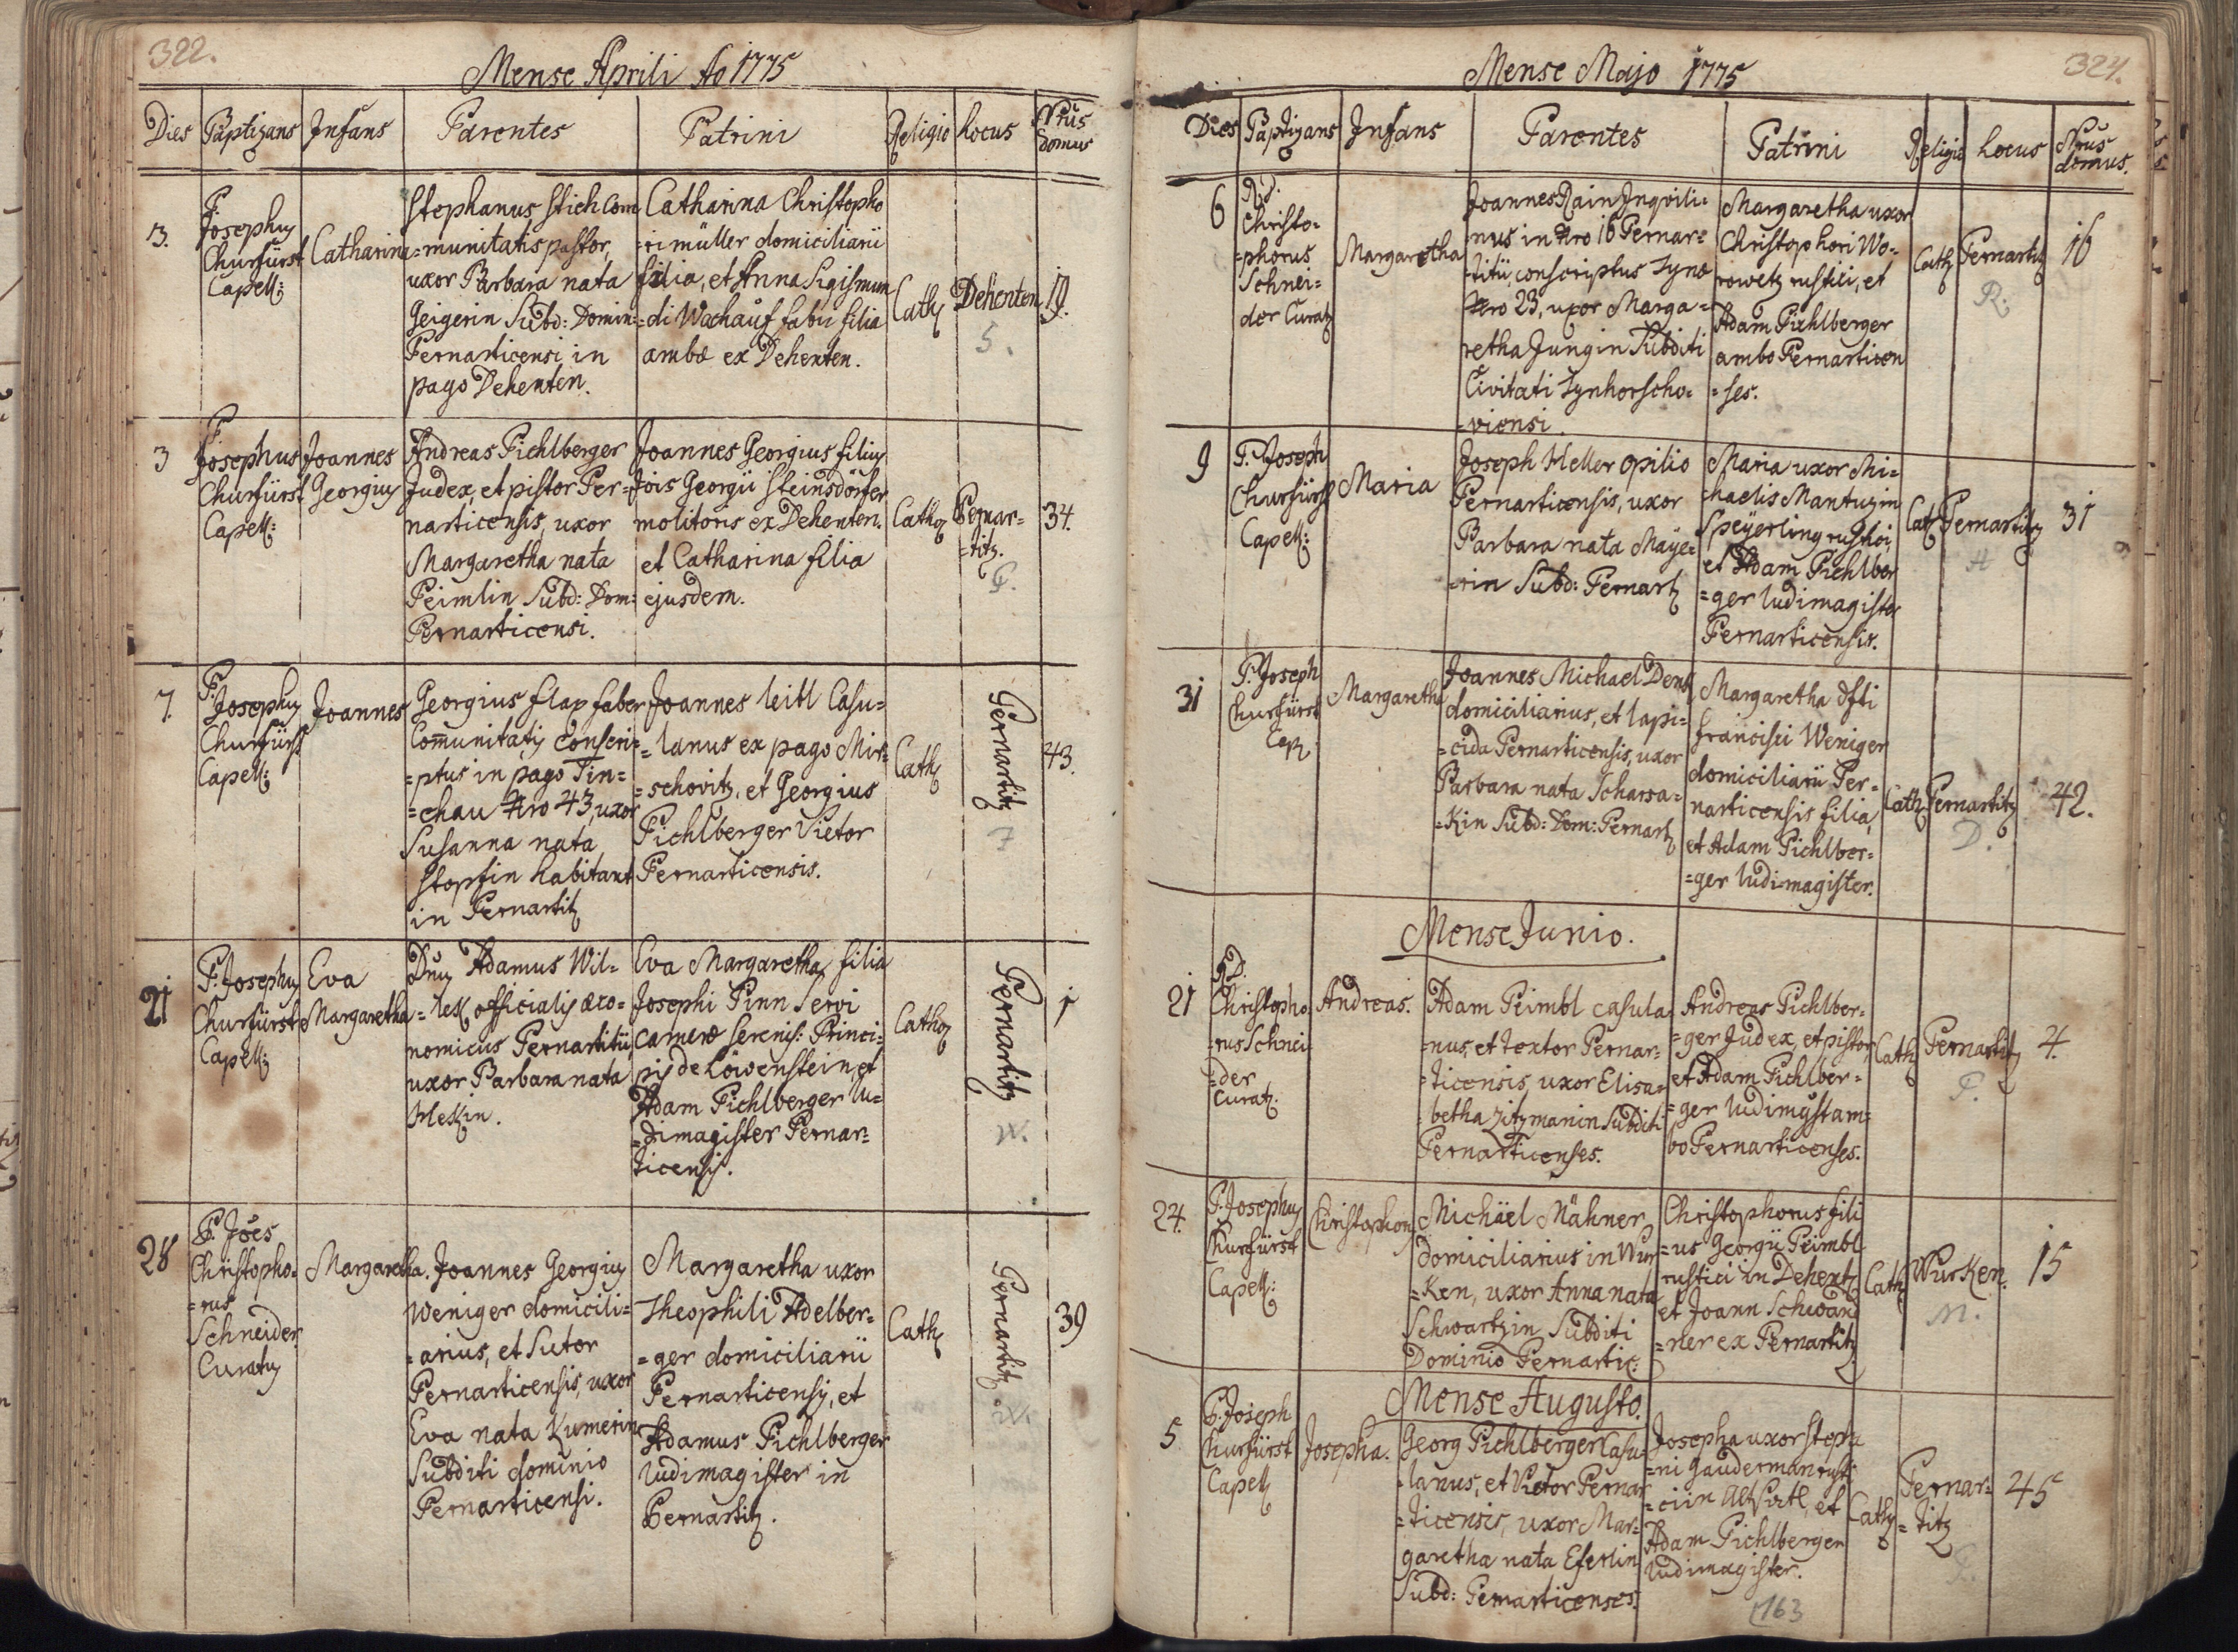 322.
Mense Aprili Ao 1775
Dies Baptizans Infans Parentes Patrini Religio Locus Nrus Domus
3. P. Josephus Churfürst Capell:
Catharina
Stephanus Stich Com
=munitatis pastor,
uxor Barbara nata
Geigerin Subd: Domin:
Pernarticensi, in
pago Dehenten.
Catharina Christopho
=ri müller domiciliarii
filia, et Anna Sigismun
=di Wachauf fabri filia
ambæ ex Dehenten.
Cath
Dehenten
5.
19.
3
P.
Josephus
Churfürst
Capell:
Joannes
Georgius
Andreas Pichlberger
Judex, et pistor Per=
narticensis, uxor
Margaretha nata
Peimlin Subd: Dom:
Pernarticensi.
Joannes Georgius filius
Jois Georgii Steinsdörfer
molitoris ex Dehenten.
et Catharina filia
ejusdem.
Catho
Pernar=
=titz.
P.
34.
7.
P.
Josephus
Churfürst
Capell:
Joannes
Georgius Flap faber
Com̄unitatis Conscri=
=ptus in pago Tin=
=chau Nro 43, uxor
Susanna nata
Stopfin habitant
in Pernartitz
Joannes Leitl Casu=
=lanus ex pago Mir=
=schovitz, et Georgius
Pichlberger Vietor
Pernarticensis.
Cath
Pernartitz
F
43.
21
P. Josephus
Churfürst
Capell:
Eva
Margaretha
Dnus Adamus Wil=
=lesch officialis œco=
nomicus Pernartitii,
uxor Barbara nata
Heskin.
Eva Margaretha filia
Josephi Pinn Servi
cameræ Serenis: Princi=
pis de Löwenstein, et
Adam Pichlberger lu=
=dimagister Pernar=
ticensis.
Catho
Pernartitz
W.
1
28
P. Jões
Christopho=
=rus
Schneider
Curatus
Margaretha.
Joannes Georgius
Weniger domicili=
=arius, et Sutor
Pernarticensis, uxor
Eva nata Kumerin
Subditi dominio
Pernarticensi.
Margaretha uxor
Theophili Adelber=
=ger domiciliarii
Pernarticensis, et
Adamus Pichlberger
ludimagister in
Pernartitz.
Cath
Pernartitz
W.
39
324.
Mense Majo 1775
Dies Baptizans Infans Parentes Patrini Religio Locus Nrus domus.
6
R.D.
Christo=
=phorus
Schnei=
der Curat
Margaretha
Joannes Rain Inqvili=
nus in Nro 16 Pernar=
titii, conscriptus Zynæ
Nro 23, uxor Marga=
retha Jungin Subditi
Civitati Zynhorscho=
=viensi.
Margaretha uxor
Christophori Wo=
rowetz rustici, et
Adam Pichlberger
ambo Pernarticen
=ses.
Cath
Pernartitz
R.
16
9
P. Joseph
Churfürst
Capell:
Maria
Joseph Heller opilio
Pernarticensis, uxor
Barbara nata Maye=
=rin Subd: Pernart
Maria uxor Mi=
chaelis Mantuzin
Speyerling rustici,
et Adam Pichlber
=ger ludimagister
Pernarticensis.
Cat
Pernartitz
H
31
31
P. Joseph
Churfürst
Cap
Margaretha
Joannes Michael Denk
domiciliarius, et lapi=
=cida Pernarticensis, uxor
Barbara nata Scharsa=
=kin Subd: Dom: Pernart
Margaretha dfti
Francisci Weniger
domiciliarii Per=
narticensis filia,
et Adam Pichlber=
=ger ludimagister.
Cath
Pernartitz
D.
42.
Mense Junio.
21
R.D.
Christopho
rus Schnei
=der
Curat.
Andreas.
Adam Peimbl casula
=nus, et textor Pernar=
=ticensis, uxor Elisa=
betha Zitzmanin Subditi
Pernarticenses.
Andreas Pichlber=
=ger Judex, et pistor
et Adam Pichlber=
=ger ludimgst am=
bo Pernarticenses.
Cath
Pernartitz
P.
4.
24.
P. Josephus
Churfürst
Capell:
Christophorus
Michäel Mähner
domiciliarius in Wur
=Ken, uxor Anna nata
Schwartzin Subditi
Dominio Pernartic:
Christophorus fili
=us Georgii Peimbl
rustici in Dehent
et Joann Schwand
=ner ex Pernartitz
Cath
Wurken.
M.
15
Mense Augusto.
5
P. Joseph
Churfürst
Capell
Josepha.
Georg Pichlberger Casu=
=lanus, et Vietor Pernar
=ticensis, uxor Mar=
garetha nata Eferlin
Subd: Pernarticenses.
Josepha uxor Steph
=ni Gauderman rusti
=ci in Altsattl, et
Adam Pichlberger
ludimagister.
Cath
Pernar=
=titz
P.
45
163